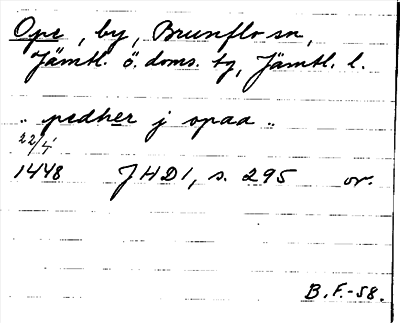 Ope, by, Brunflo sn,
Jämtl. ö. doms. tg, Jämtl. l.
.. pedher j opaa ..
22/5
1448 JHD1, s. 295 or.
B.F.-58.